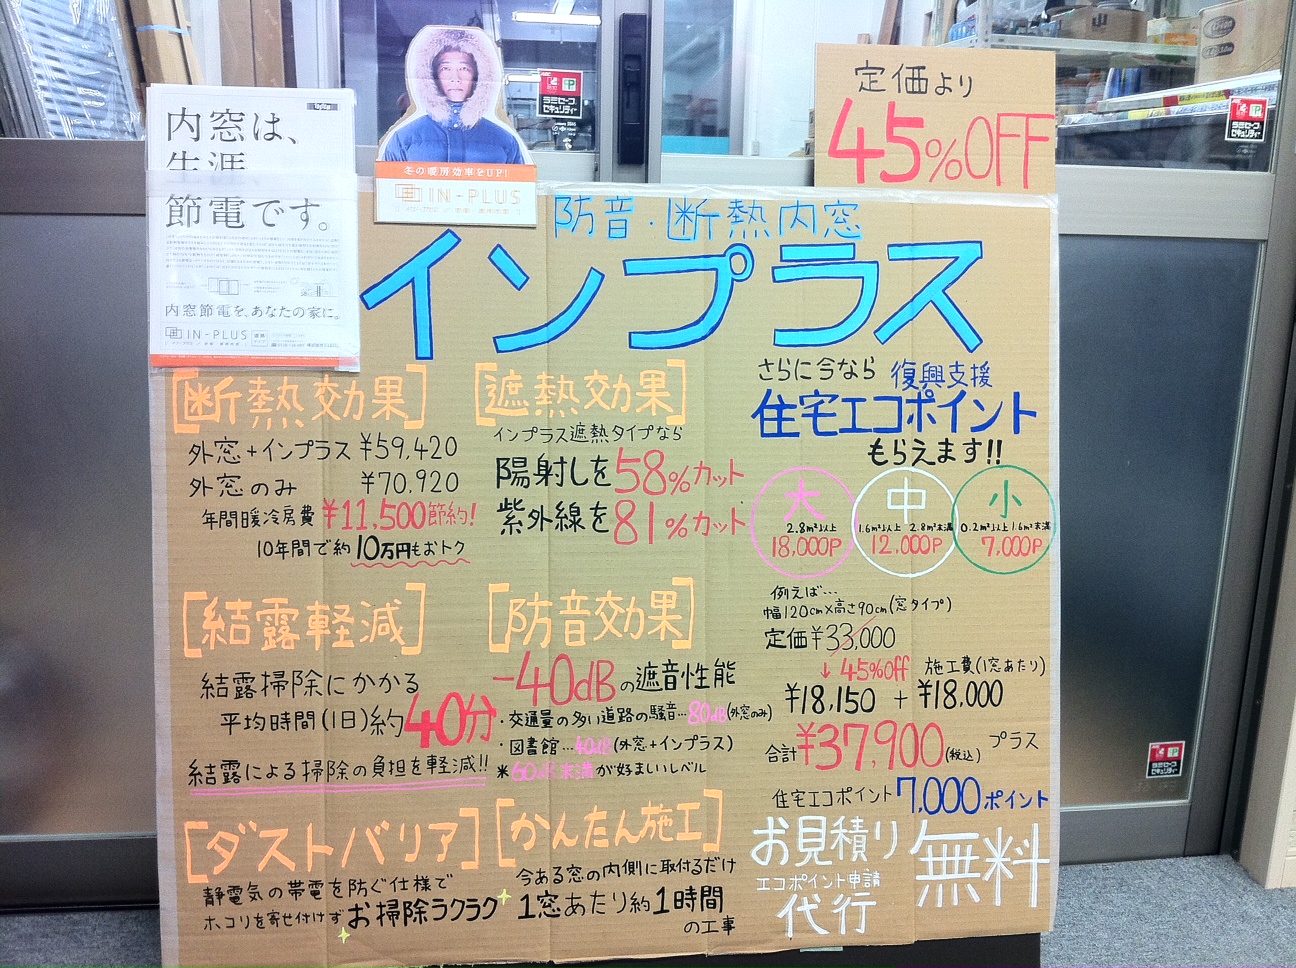 内窓は、
生涯
節電です。
内窓節電を、あなたの家に。
IN-PLUS
冬の暖房効率をUP!
IN-PLUS
ラミセーフ
セキュリティー
ラミセーフ
セキュリティー
ラミセーフ
セキュリティー
定価より
45%OFF
防音・断熱内窓
インプラス
[断熱効果]
外窓+インプラス ¥59,420
外窓のみ ¥70,920
年間暖冷房費 ¥11,500節約!
10年間で約10万円もおトク
[遮熱効果]
インプラス遮熱タイプなら
陽射しを58%カット
紫外線を81%カット
さらに今なら 復興支援
住宅エコポイント
もらえます!!
大
2.8m²以上
18,000P
中
1.6m²以上 2.8m²未満
12,000P
小
0.2m²以上 1.6m²未満
7,000P
例えば…
幅120cm×高さ90cm(窓タイプ)
定価¥33,000
↓ 45%off 施工費(1窓あたり)
¥18,150 + ¥18,000
合計¥37,900(税込) プラス
住宅エコポイント7,000ポイント
お見積り
エコポイント申請
代行
無料
[結露軽減]
結露掃除にかかる
平均時間(1日)約40分
結露による掃除の負担を軽減!!
[防音効果]
-40dBの遮音性能
・交通量の多い道路の騒音…80dB(外窓のみ)
・図書館…40dB(外窓+インプラス)
*60dB未満が好ましいレベル
[ダストバリア]
静電気の帯電を防ぐ仕様で
ホコリを寄せ付けずお掃除ラクラク
[かんたん施工]
今ある窓の内側に取付るだけ
1窓あたり約1時間
の工事